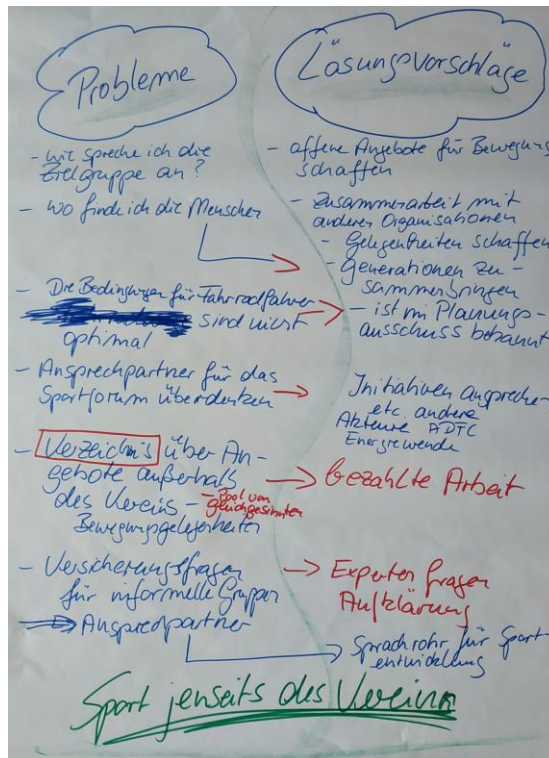 Probleme
- wie spreche ich die
Zielgruppe an?
- wo finde ich die Menschen
- Die Bedingungen für Fahrradfahrer
sind nicht
optimal
- Ansprechpartner für das
Sportforum überdenken
- Verzeichnis über An-
gebote außerhalb
des Vereins - Pool von
gleichgesinnten
Bewegungsgelegenheiten
- Versicherungsfragen
für informelle Gruppen
Ansprechpartner
Lösungsvorschläge
- offene Angebote für Bewegung
schaffen
- Zusammenarbeit mit
anderen Organisationen
- Gelegenheiten schaffen
- Generationen zu-
sammenbringen
- ist im Planungs-
ausschuss bekannt
Initiativen ansprechen
etc. andere
Akteure ADFC
Energiewende
bezahlte Arbeit
Experten fragen
Aufklärung
Sprachrohr für Sport-
entwicklung
Sport jenseits des Vereins